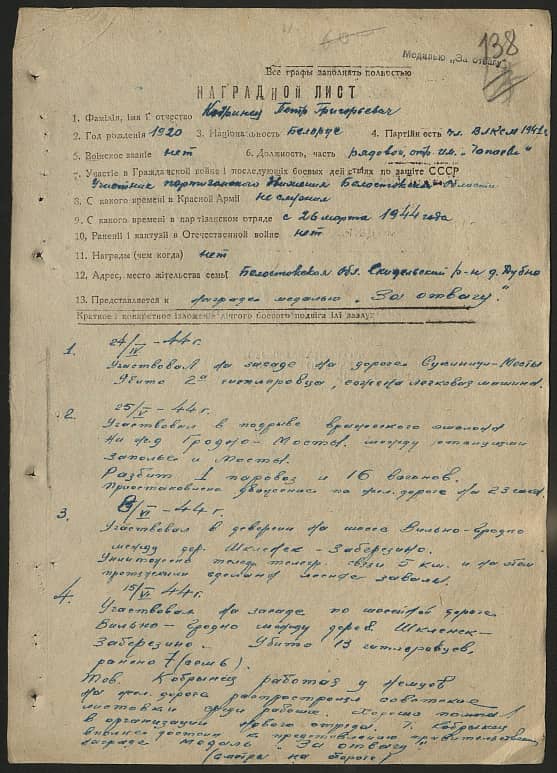 138
Медалью „За отвагу"
Все графы заполнять полностью
НАГРАДНОЙ ЛИСТ
1. Фамілія, імя ї отчество Кобринец Петр Григорьевич
2. Год рождения 1920 3. Національность Белорус 4. Партійность чл. ВЛКСМ 1941г
5. Воїнское званіе нет 6. Должность, часть рядовой, отр. им. "Чапаева"
7. Участіе в Гражданской войне ї последующіх боевых действіях по защіте СССР
Участник партизанского движения Белостокской области
8. С какого времені в Красной Арміі не служил
9. С какого времені в партізанском отряде с 26 марта 1944 года
10. Раненіі ї кантузіі в Отечественной войне нет
11. Награды (чем когда) нет
12. Адрес, место жітельства семьі Белостокской обл. Скидельский р-н д. Дубно
13. Представляется к награде медалью „За отвагу"
Краткое ї конкретное ізложеніе лічного боевого подвіга ілі заслуг
1. 24/IV-44 г.
Участвовал на засаде на дороге Мосты
Убито 2а гитлеровца, сожжена легковая машина.
2. 25/V-44 г.
Участвовал в подрыве вражеского эшелона
на ж.д Гродно-Мосты между станциями
Заполье и Мосты.
Разбит 1 паровоз и 16 вагонов.
Приостановлено движение по жел. дороге на 23 часа.
3. /VI-44 г.
Участвовал в диверсии на шоссе Вильно-Гродно
между дер. Шкленск-Заберезино.
Уничтожено телеф. телегр. связи 5 км. и на этом
протяжении сделаны лесные завалы.
4. 15/VI-44 г.
Участвовал на засаде по шоссейной дороге
Вильно-Гродно между дерев. Шкленск-
Заберезино. Убито 13 гитлеровцев,
ранено 7 (семь).
Тов. Кобринец работая у немцев
на жел. дороге распространял советские
листовки среди рабочих. Хорошо помогал
в организации нового отряда. Т. Кобринец
вполне достоин к представлению правительственной
награде медаль „За отвагу"
(смотри на обороте)